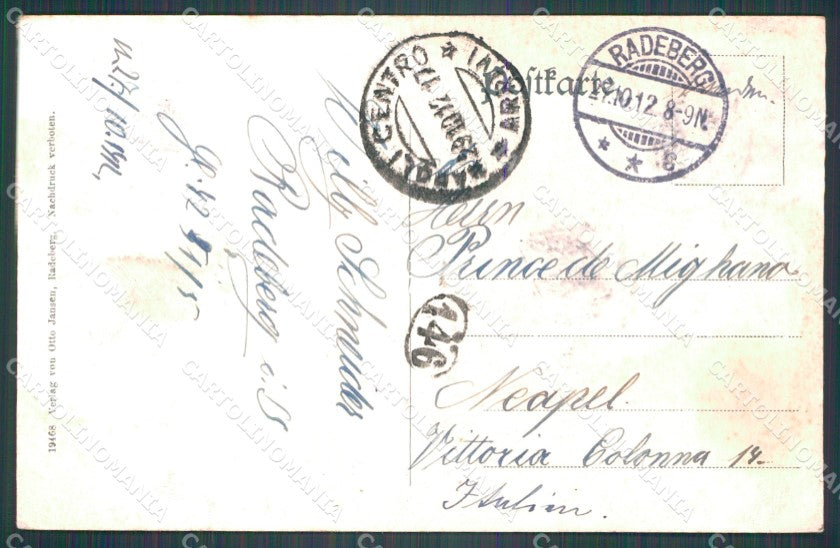 Postkarte
RADEBERG
27.10.12 8-9N.
* * c
NAPOLI CENTRO * (ARRIVI) *
29.10.12.17
Herrn
Prince de Mignano
146
Neapel.
Vittoria Colonna 14.
Italien.
Willy Schneider
Radeberg i. S
19468 Verlag von Otto Jansen, Radeberg. Nachdruck verboten.
CARTOLINOMANIA